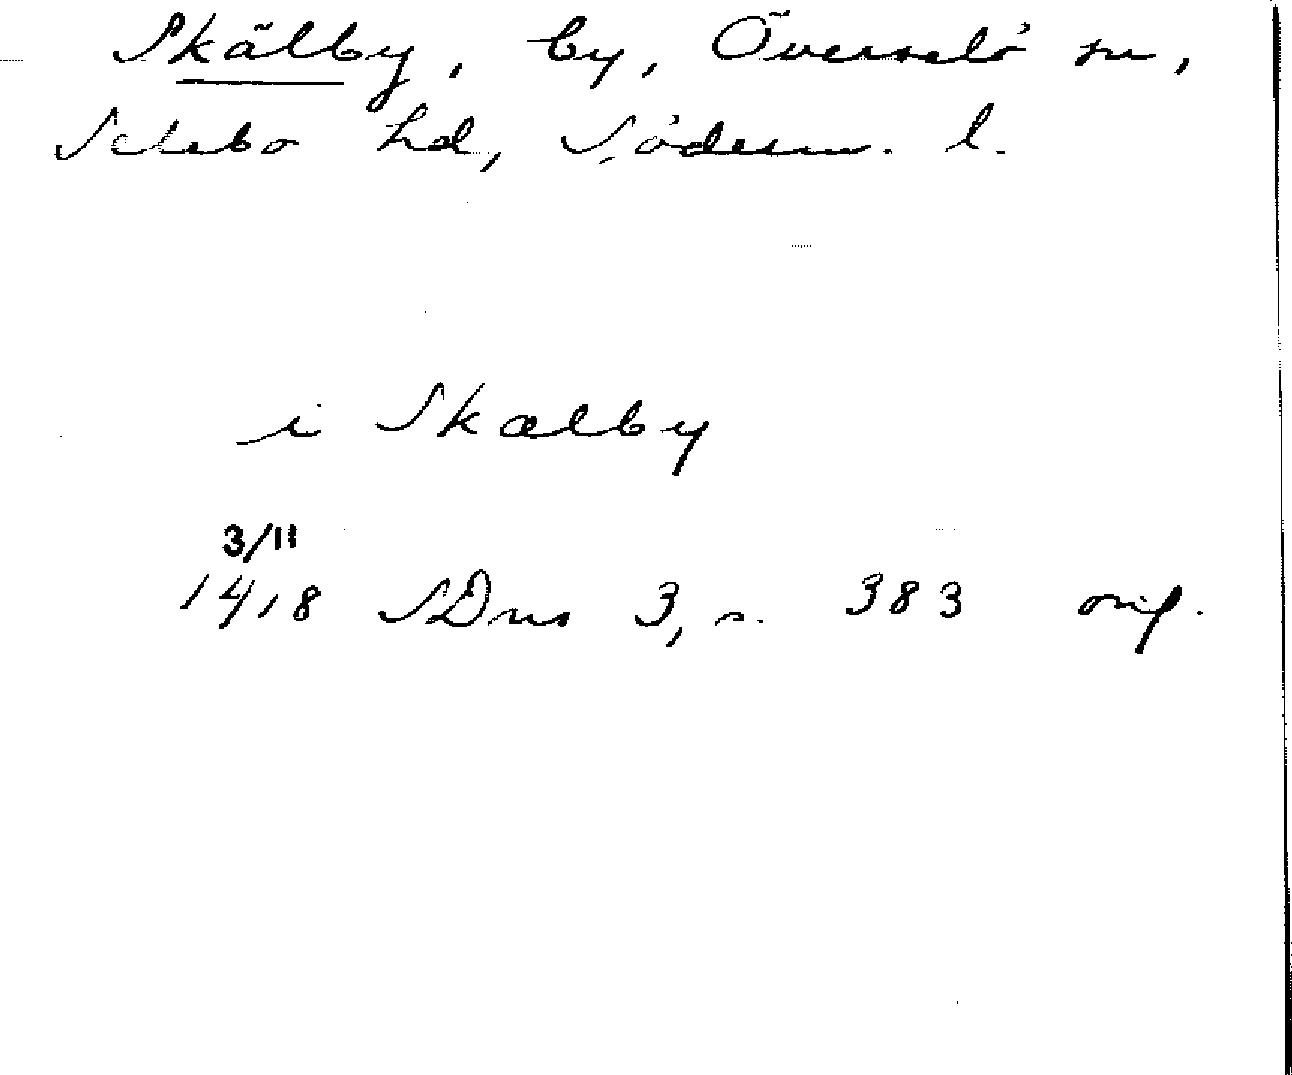 Skälby, by, Överselö sn,
Selebo hd, Söderm. l.
i Skælby
3/11
1418 SDns 3, s. 383 orig.